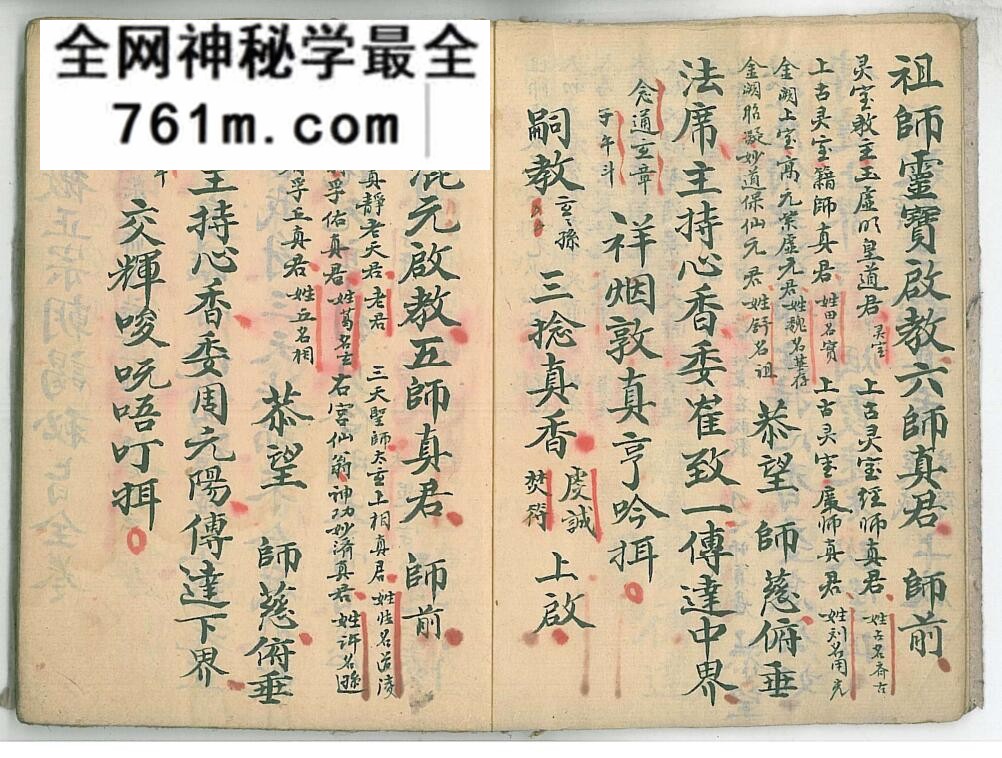 全网神秘学最全
761m.com
祖師靈寶啟教六師真君 師前
灵宝教主玉虚明皇道君 灵宝 上古灵宝经师真君 姓古名齊古
上古灵宝籍師真君 姓田名寳 上古灵宝度师真君 姓刘名用光
金阙上宝高元宗虚元君 姓魏名華存
金阙昭凝妙道保仙元君 姓舒名祖
恭望 師慈俯垂
法席主持心香委崔致一傳達中界
念通玄章
子午斗
祥烟敦真亨吟挕
嗣教玄孫 三捻真香 虔誠 焚符 上啟
混元啟教五師真君 師前
真靜老天君 老君 三天聖師太玄上相真君 姓張名道陵
孚佑真君 姓葛名玄 右宮仙翁神功妙濟真君 姓許名遜
孚丘真君 姓丘名相
恭望 師慈俯垂
主持心香委周元陽傳達下界
交輝唆吮唔叮挕